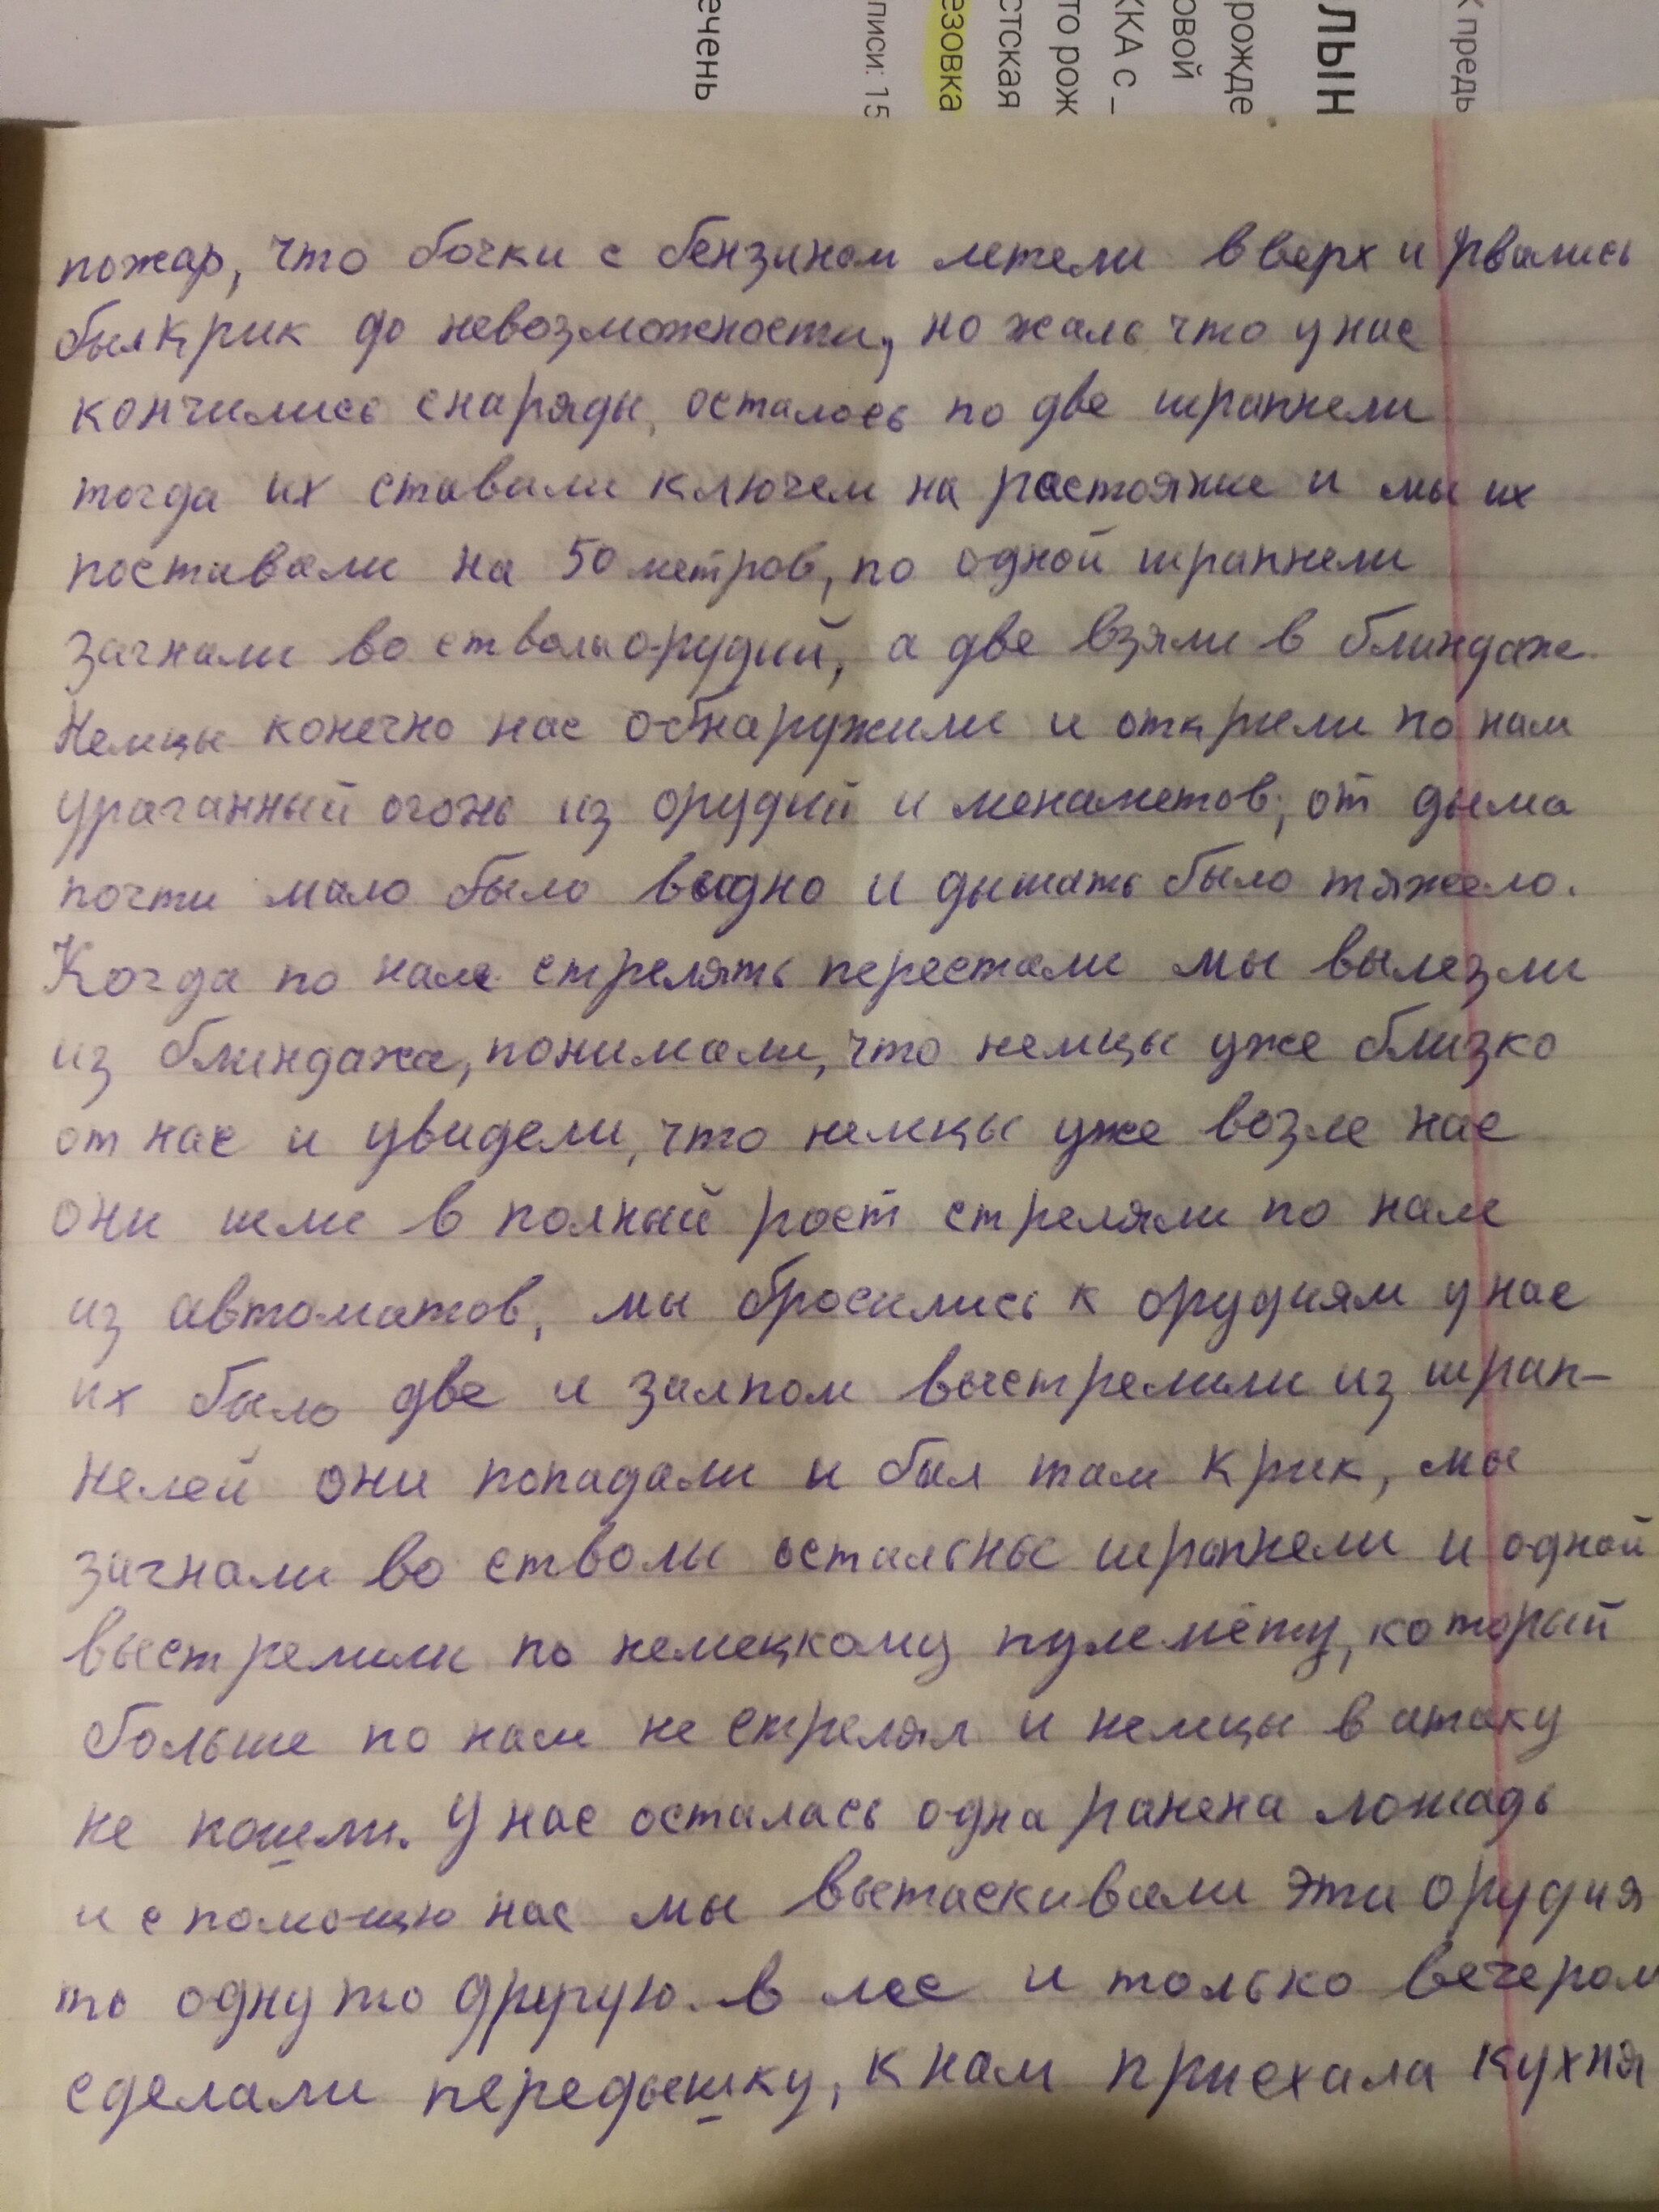 ечень
писи: 15
езовка
стская
то рож
ККА с _
овой
рожде
ЛЫН
К предь
пожар, что бочки с бензином летели вверх и рвались
был крик до невозможности, но жаль что у нас
кончились снаряды, осталось по две шрапнели
тогда их ставили ключем на растояние и мы их
поставали на 50 метров, по одной шрапнели
загнали во стволы орудий, а две взяли в блиндаж.
Немцы конечно нас обнаружили и открыли по нам
ураганный огонь из орудий и менаметов, от дыма
почти мало было видно и дышать было тяжело.
Когда по нам стрелять перестали мы вылезли
из блиндажа, понимали, что немцы уже близко
от нас и увидели, что немцы уже возле нас
они шли в полный рост стреляли по нам
из автоматов, мы бросились к орудиям у нас
их было две и залпом выстрелили из шрап-
нелей они попадали и был там крик, мы
загнали во стволы остальные шрапнели и одной
выстрелили по немецкому пулемёту, который
больше по нам не стрелял и немцы в атаку
не пошли. У нас осталась одна ранена лошадь
и с помощю нас мы вытаскивали эти орудия
то одну то другую в лес и только вечером
сделали передышку, к нам приехала кухня